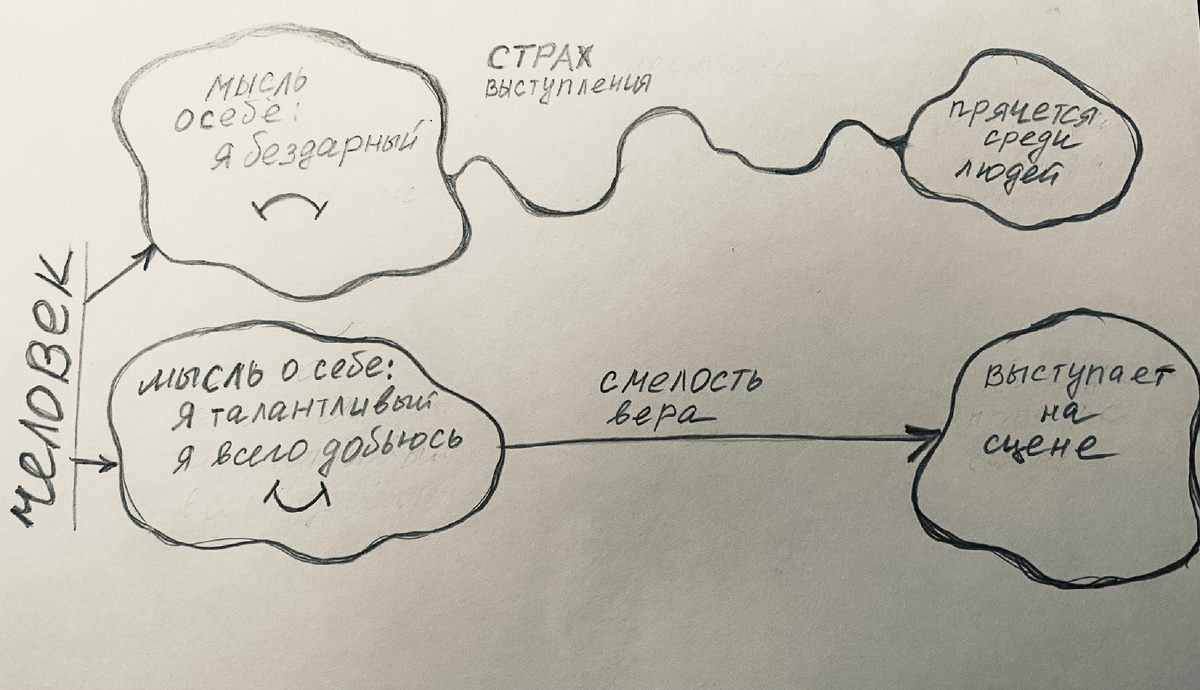 человек
мысль
о себе:
я бездарный
СТРАХ
выступления
прячется
среди
людей
мысль о себе:
я талантливый
я всего добьюсь
смелость
вера
выступает
на
сцене